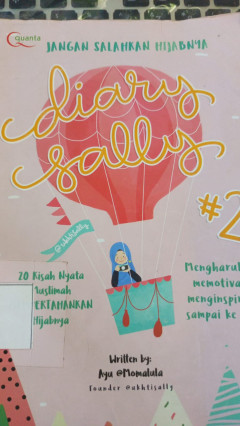 Quanta
JANGAN SALAHKAN HIJABNYA
diary
sally
#2
@akhtisally
20 Kisah Nyata
Muslimah
Hijabnya
memotiva
menginspir
sampai ke
Written by:
Ayu @Momalula
Founder @akhtisally